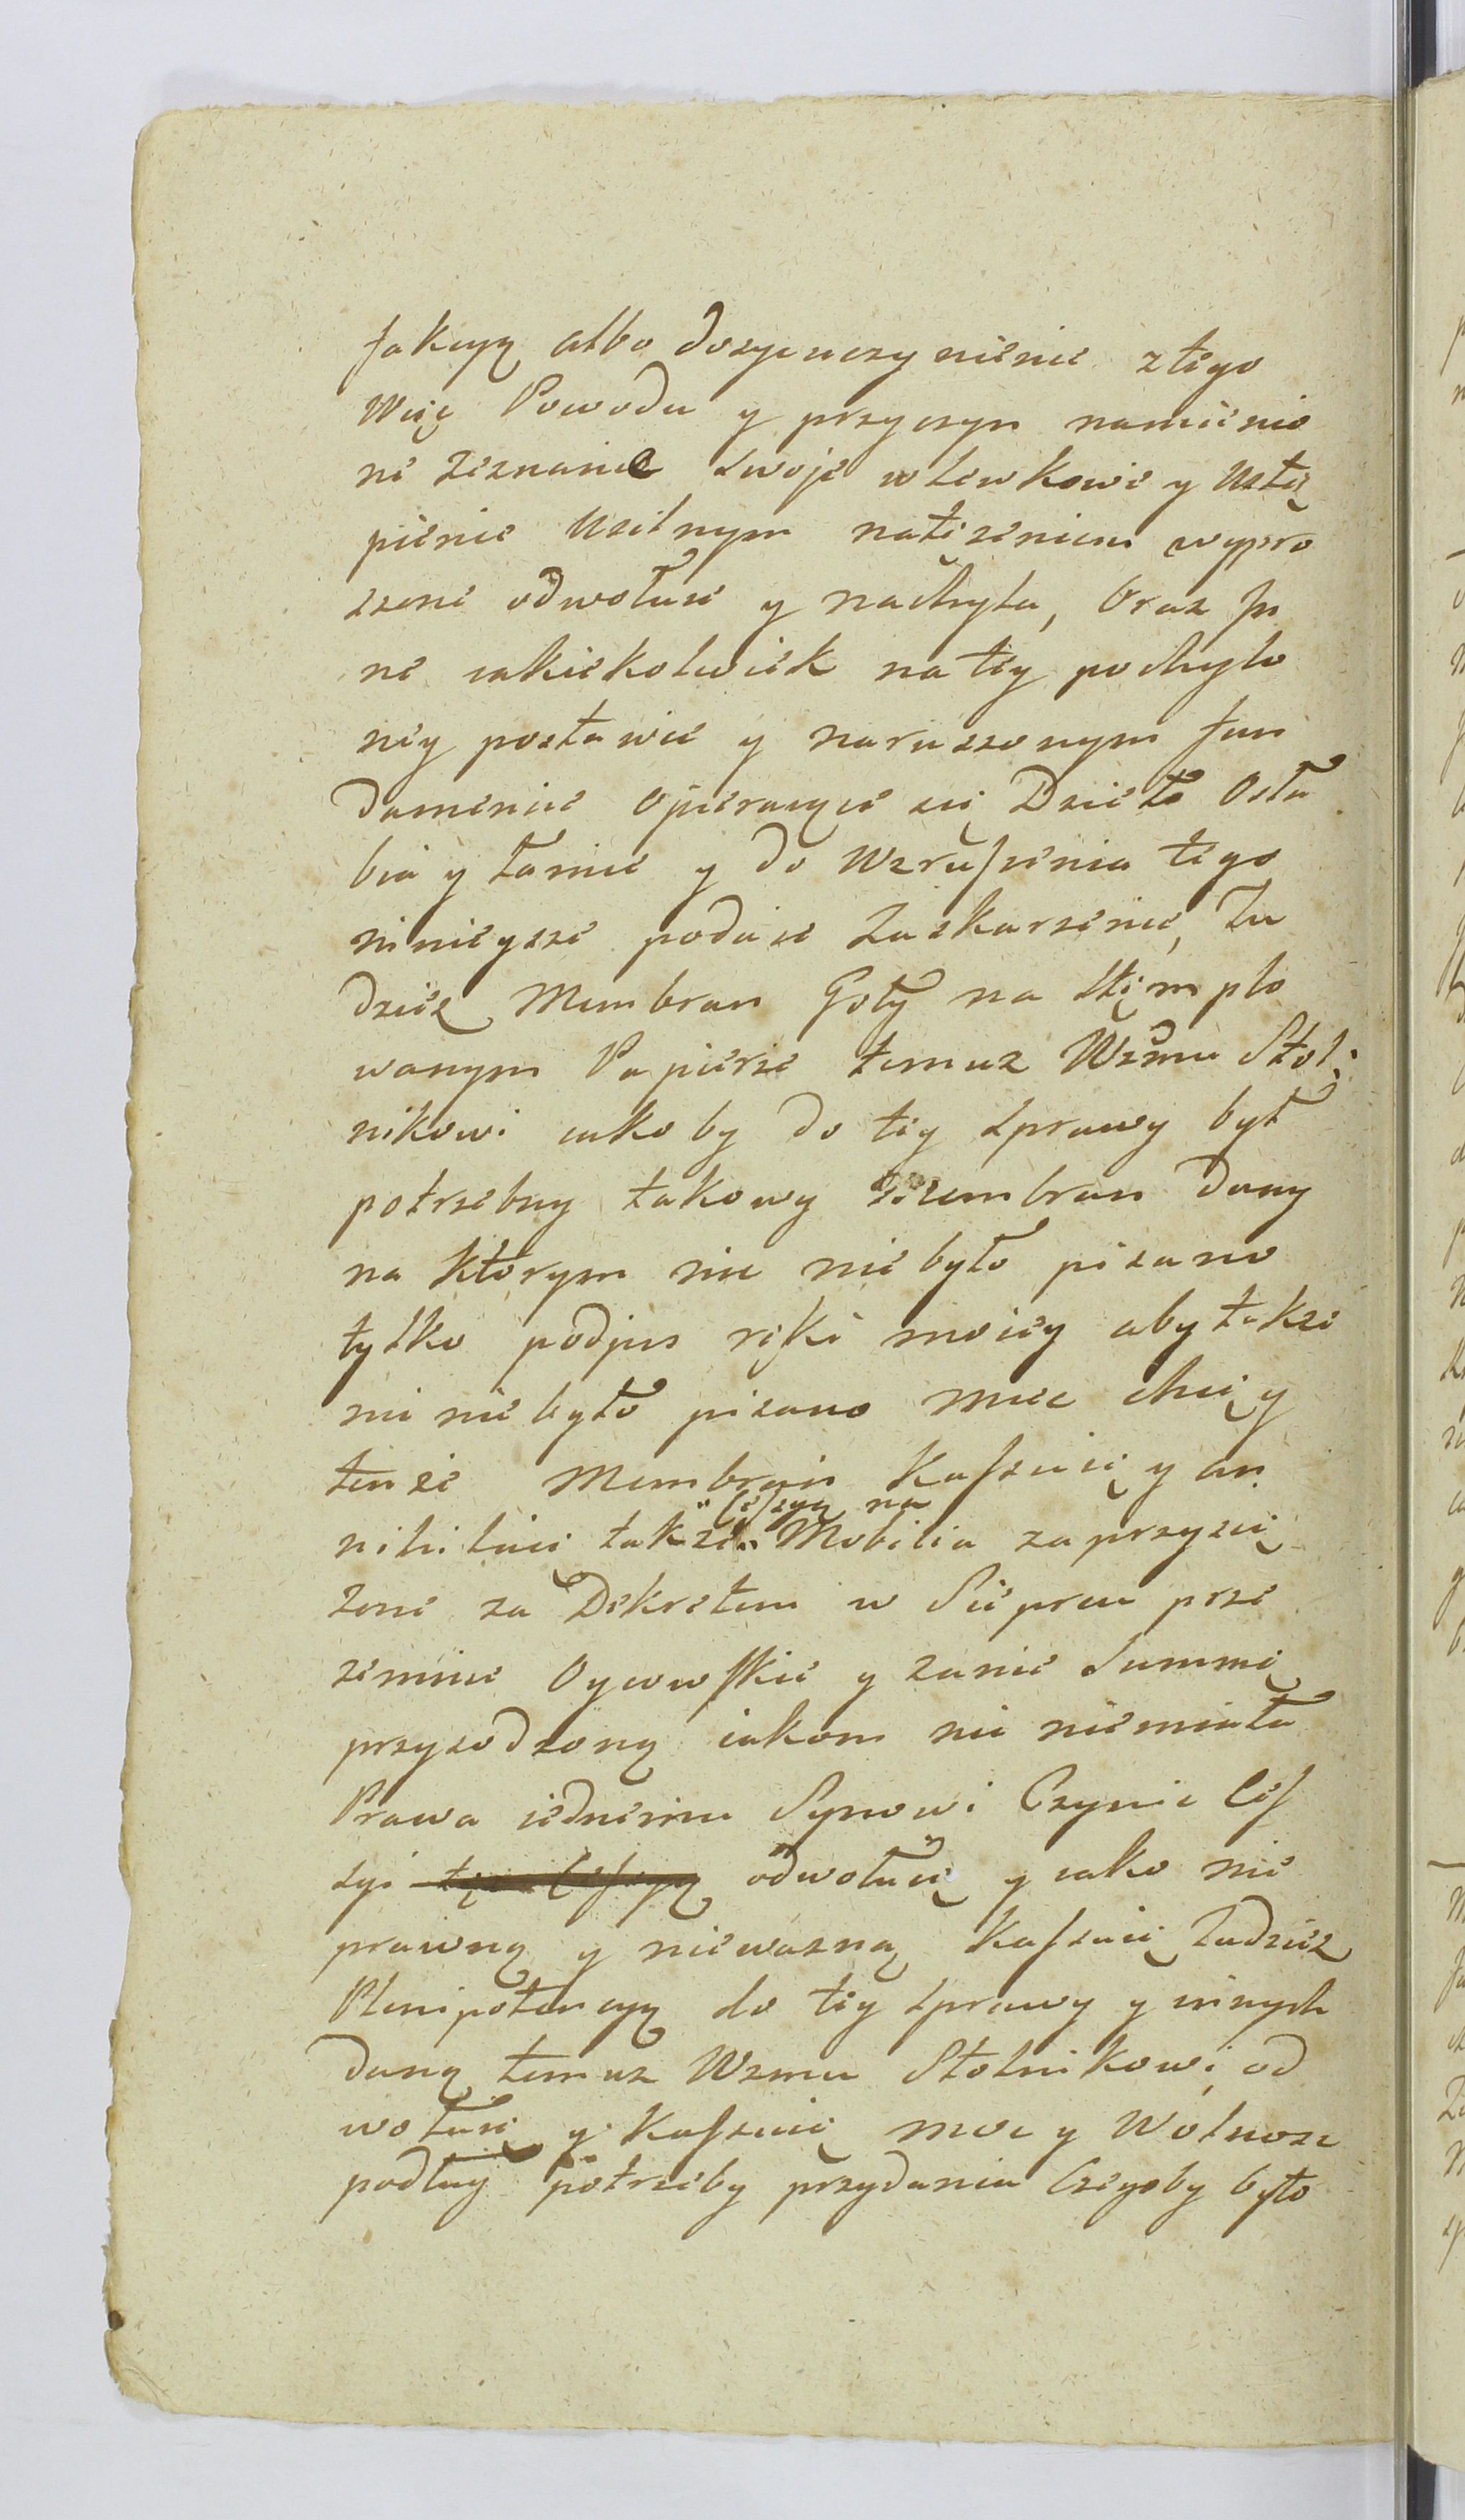 fakcyą albo dosycuczynienie z tego
Więc Powodu y przyczyn namienio
ne Zeznanie swoje wlewkowe y Ustą
pienie Usilnym natezeniem wypro
szone odwołuie y nachyla, Oraz In
ne iakiekolwiek na tey pochylo
ney postawie y naruszonym fun
damencie Opieraiące się Dzieła Osła
bia y łamie y do Wzruszenia tego
ninieysze podaie Zaskarzenie, Tu
dziesz Membran Goły na steęmplo
wanym Papierze temuz Wzmu Stol:
nikowi iakoby do tey sprawy był
potrzebny takowy Membran dany
na ktorym nic nie było pisano
tylko podpis ręki moiey aby takze
nic nie było pisano miec chcę y
tenże Membran Kassuię y an
nihiluię także Cessyą na Mobilia zaprzysię
zone za Dekretem w Sieprcu prze
zemnie Oycowskie y zanie Summę
przysodzoną iakom nic niemiała
Prawa iednemu Synowi Czynić Ces
syi tęz Cessyą odwołuię y iako nie
prawną y niewazną Kassuię Tudziesz
Plenipotencyą do tey sprawy y innych
daną temuz Wzmu Stolnikowi od
wołuię y Kassuię moc y Wolnosc
podług potrzeby przydania Czegoby było